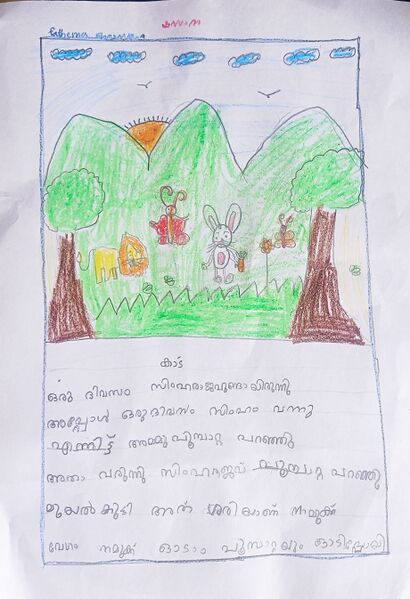 കാട്
ഒരു ദിവസം സിംഹരാജവുണ്ടായിരുന്നു
അപ്പോൾ ഒരു ദിവസം സിംഹം വന്നു
എന്നിട്ട് അമ്മുപൂമ്പാറ്റ പറഞ്ഞു
അതാ വരുന്നു സിംഹരാജവ് പൂമ്പാറ്റ പറഞ്ഞു
മുയൽ കൂടി അത് ശരിയാണ് നമുക്ക്
വേഗം നമുക്ക് ഓടാം പൂമ്പാറ്റയും ഓടിപ്പോയി